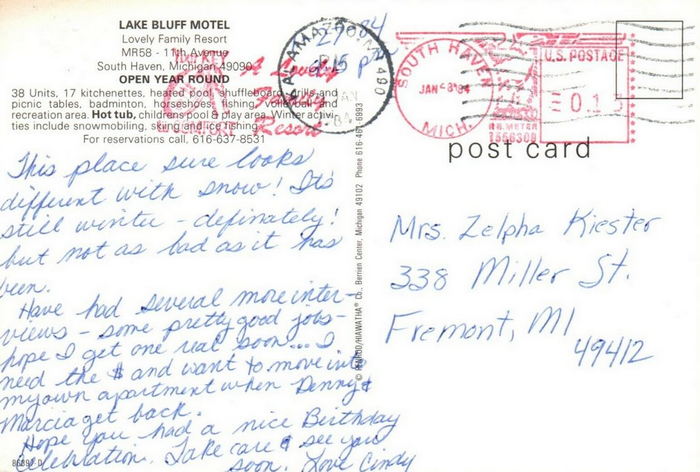 LAKE BLUFF MOTEL
Lovely Family Resort
MR58 - 11th Avenue
South Haven, Michigan 49090
OPEN YEAR ROUND
38 Units, 17 kitchenettes, heated pool, shuffleboard, grills and
picnic tables, badminton, horseshoes, fishing, volleyball and
recreation area. Hot tub, children's pool & play area. Winter activi-
ties include snowmobiling, skiing and ice fishing.
For reservations call, 616-637-8531
A Lovely
Family
Resort
KALAMAZOO, MI 490
SOUTH HAVEN
JAN -3'84
MICH.
U.S. POSTAGE
0.1
P.B. METER
post card
This place sure looks
different with snow! It's
still winter - definately!
but not as bad as it has
been.
Have had several more inter-
views - some pretty good jobs -
hope I get one real soon... I
need the $ and want to move into
my own apartment when Denny &
Marcia get back.
Hope you had a nice Birthday
Celebration. Take care & see you
soon. Love Cindy
86892-D
© PENROD/HIAWATHA® Co., Berrien Center, Michigan 49102 Phone 616-461-6993
Mrs. Zelpha Kiester
338 Miller St.
Fremont, MI
49412